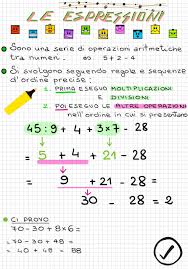 LE ESPRESSIONI
Sono una serie di operazioni aritmetiche
tra numeri. es 5+2-4
Si svolgono seguendo regole e sequenze
d'ordine precise:
1. PRIMA ESEGUO MOLTIPLICAZIONI
E DIVISIONI
2. POI ESEGUO LE ALTRE OPERAZIONI
nell'ordine in cui si presentano
45:9 + 4 + 3×7 - 28
= 5 + 4 + 21 - 28 =
= 9 + 21 - 28 =
= 30 - 28 = 2
CI PROVO
70 - 30 + 8×6 =
= 70 - 30 + 48 =
= 40 + 48 = 88